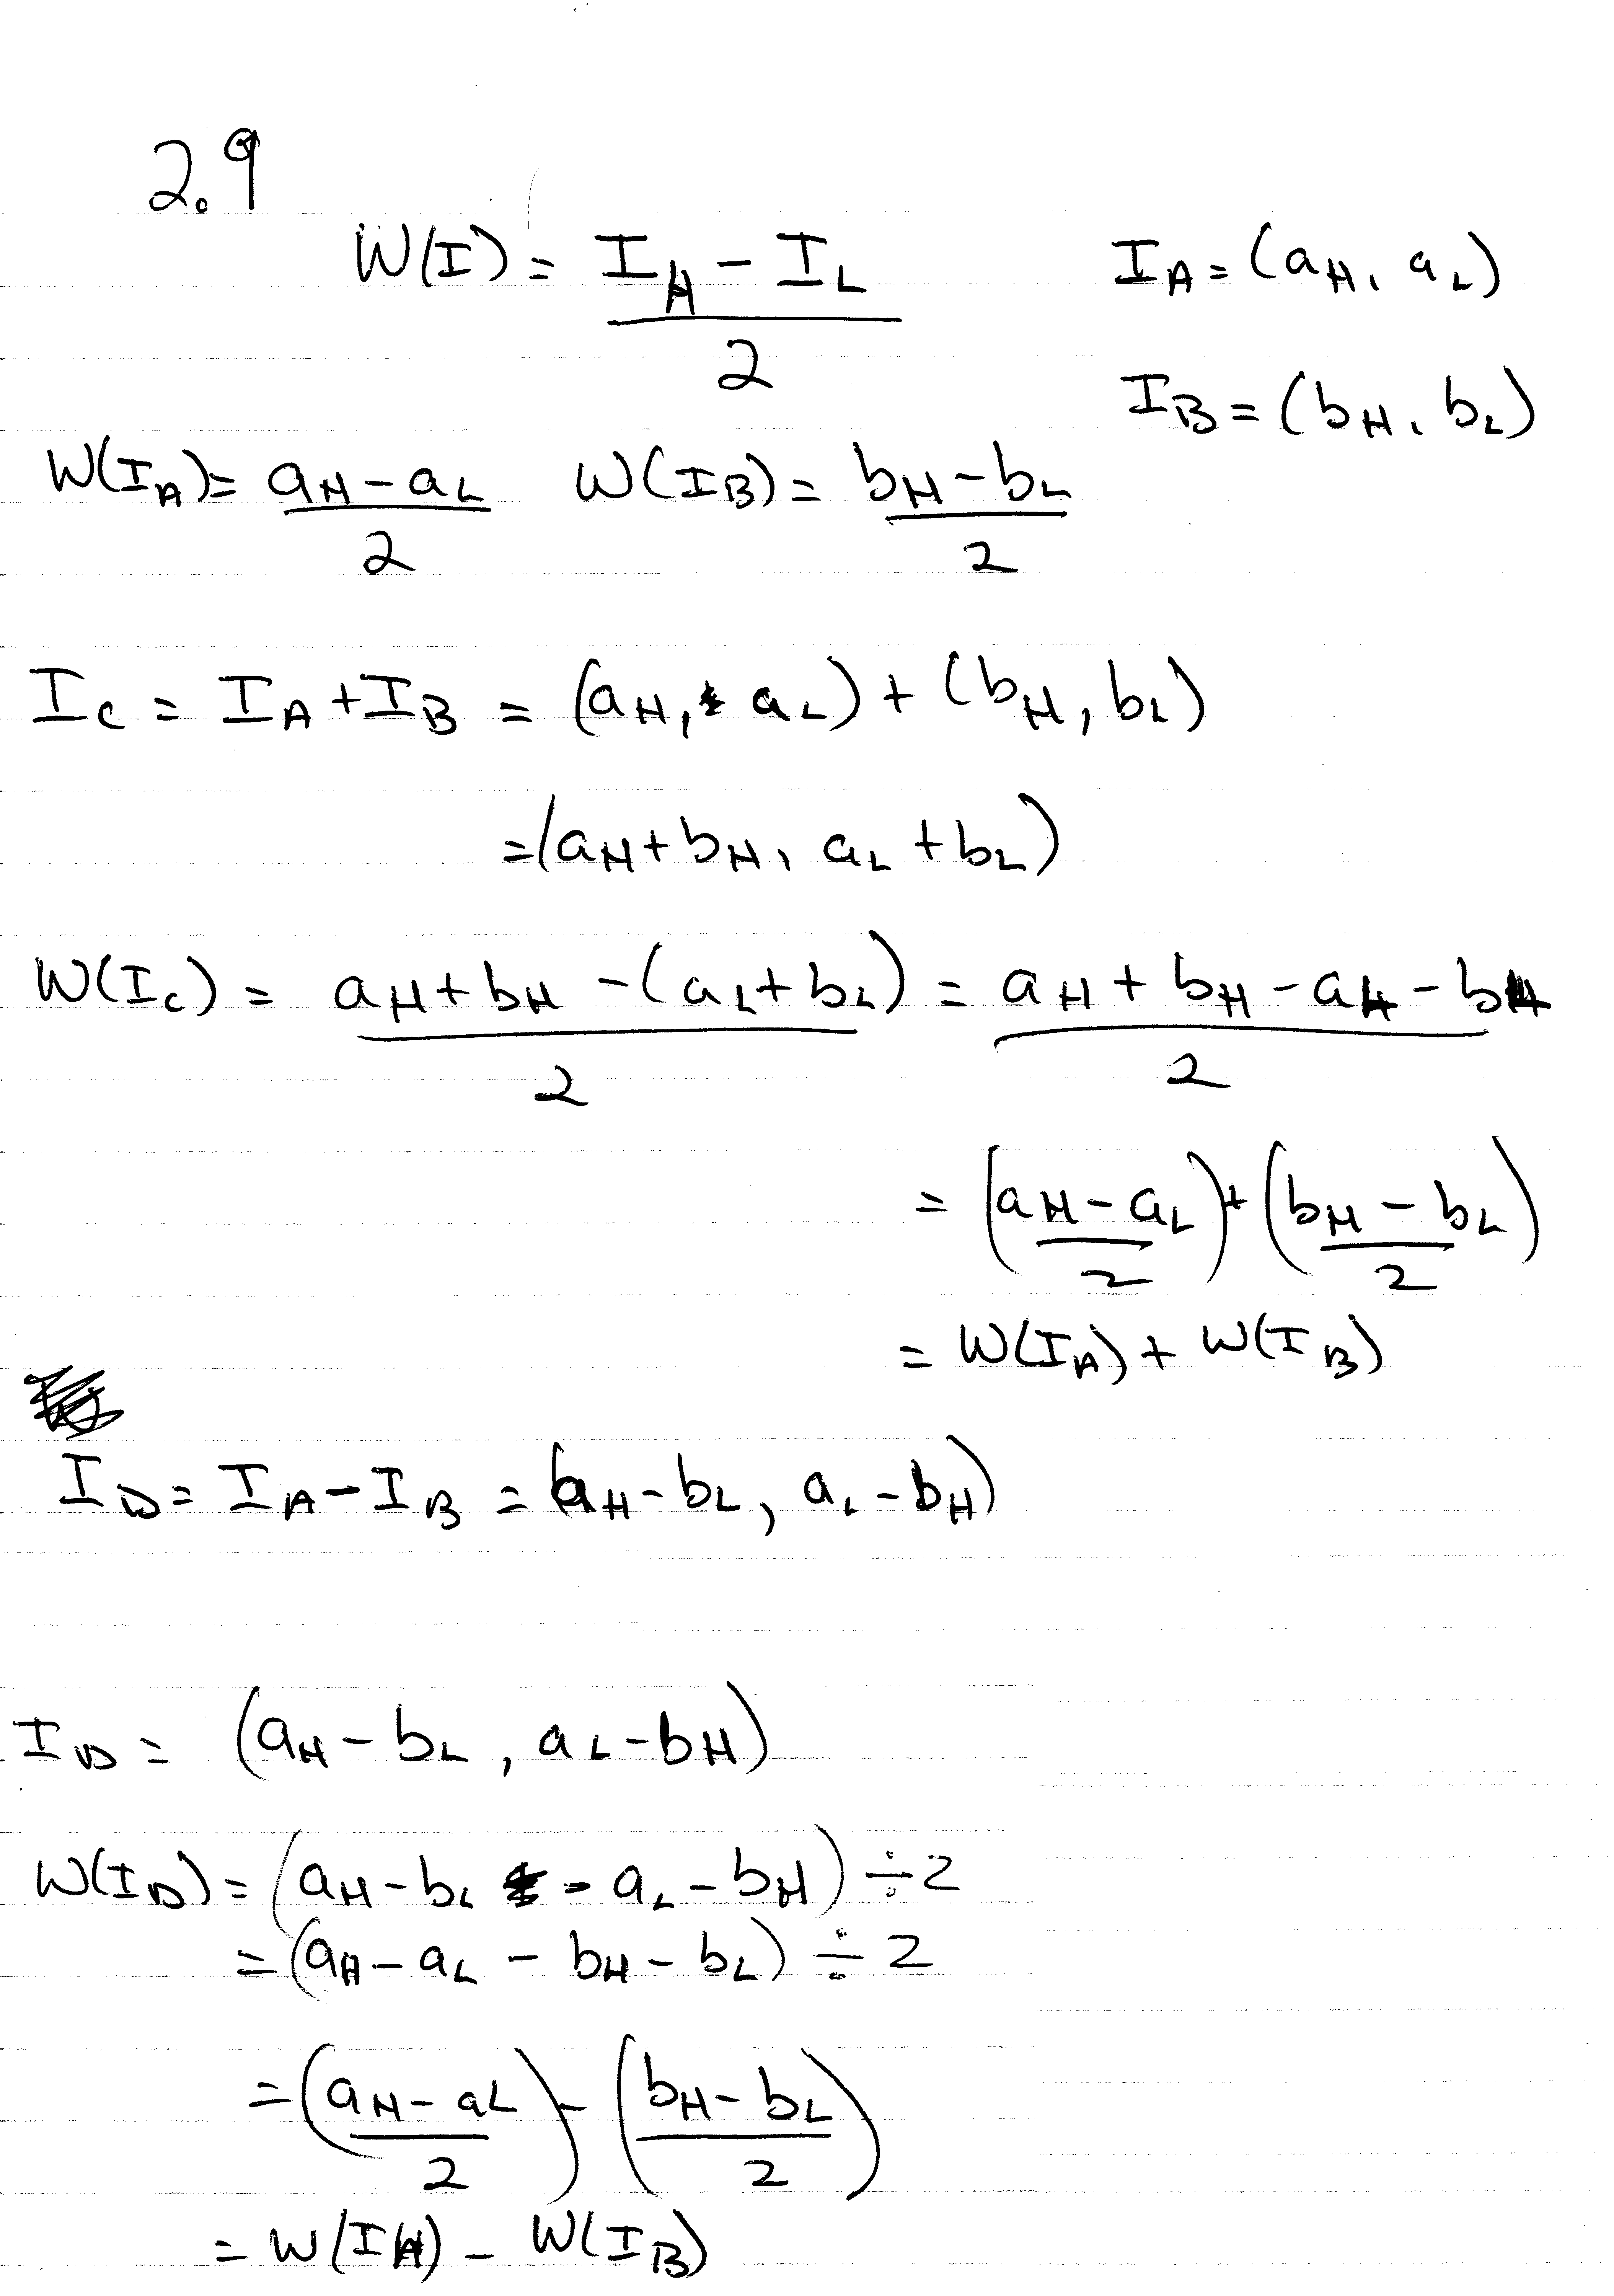 2.9
W(I) = (I_H - I_L)/2    I_A = (a_H, a_L)
I_B = (b_H, b_L)
W(I_A) = (a_H - a_L)/2    W(I_B) = (b_H - b_L)/2
I_C = I_A + I_B = (a_H, a_L) + (b_H, b_L)
= (a_H + b_H, a_L + b_L)
W(I_C) = (a_H + b_H - (a_L + b_L))/2 = (a_H + b_H - a_L - b_L)/2
= ((a_H - a_L)/2) + ((b_H - b_L)/2)
= W(I_A) + W(I_B)
I_D = I_A - I_B = (a_H - b_L, a_L - b_H)
I_D = (a_H - b_L, a_L - b_H)
W(I_D) = (a_H - b_L - a_L - b_H) ÷ 2
= (a_H - a_L - b_H - b_L) ÷ 2
= ((a_H - a_L)/2) - ((b_H - b_L)/2)
= W(I_A) - W(I_B)